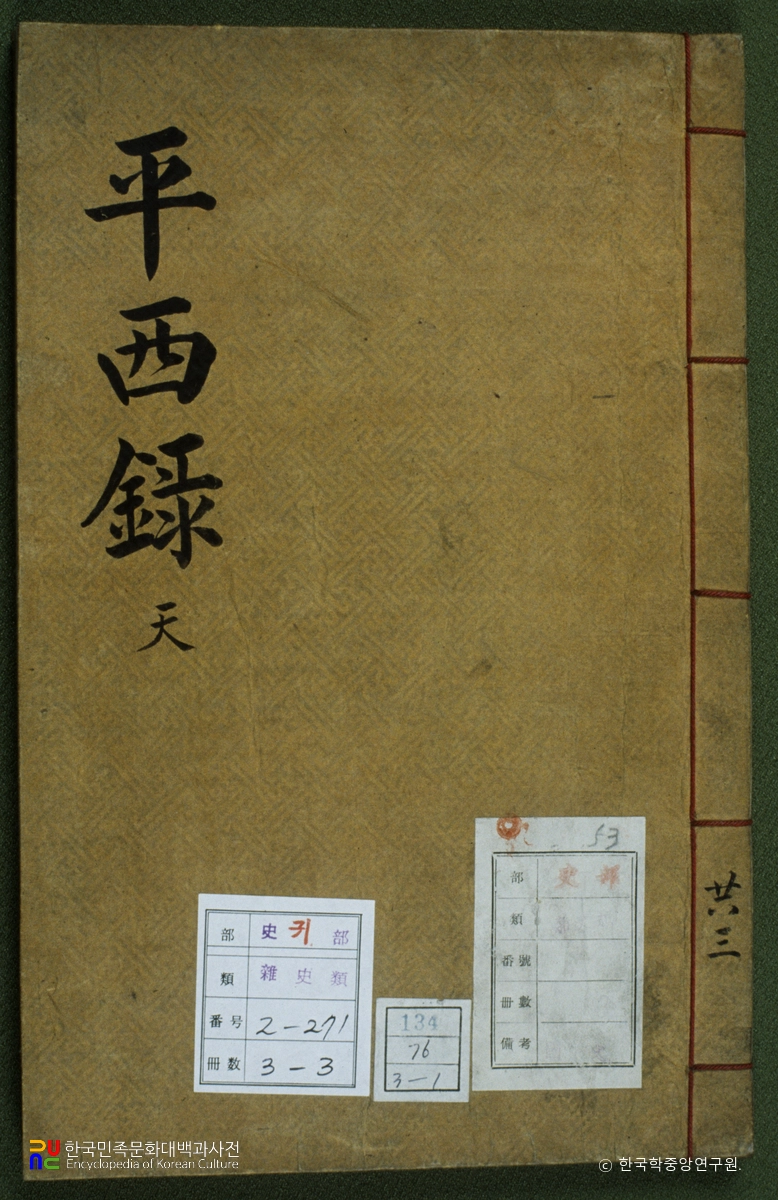 平西錄
天
共三
53
部 史部
類
番號
冊數
備考
部 史 귀 部
類 雜史類
番号 2-271
冊数 3-3
134
76
3-1
한국민족문화대백과사전
Encyclopedia of Korean Culture
ⓒ 한국학중앙연구원.